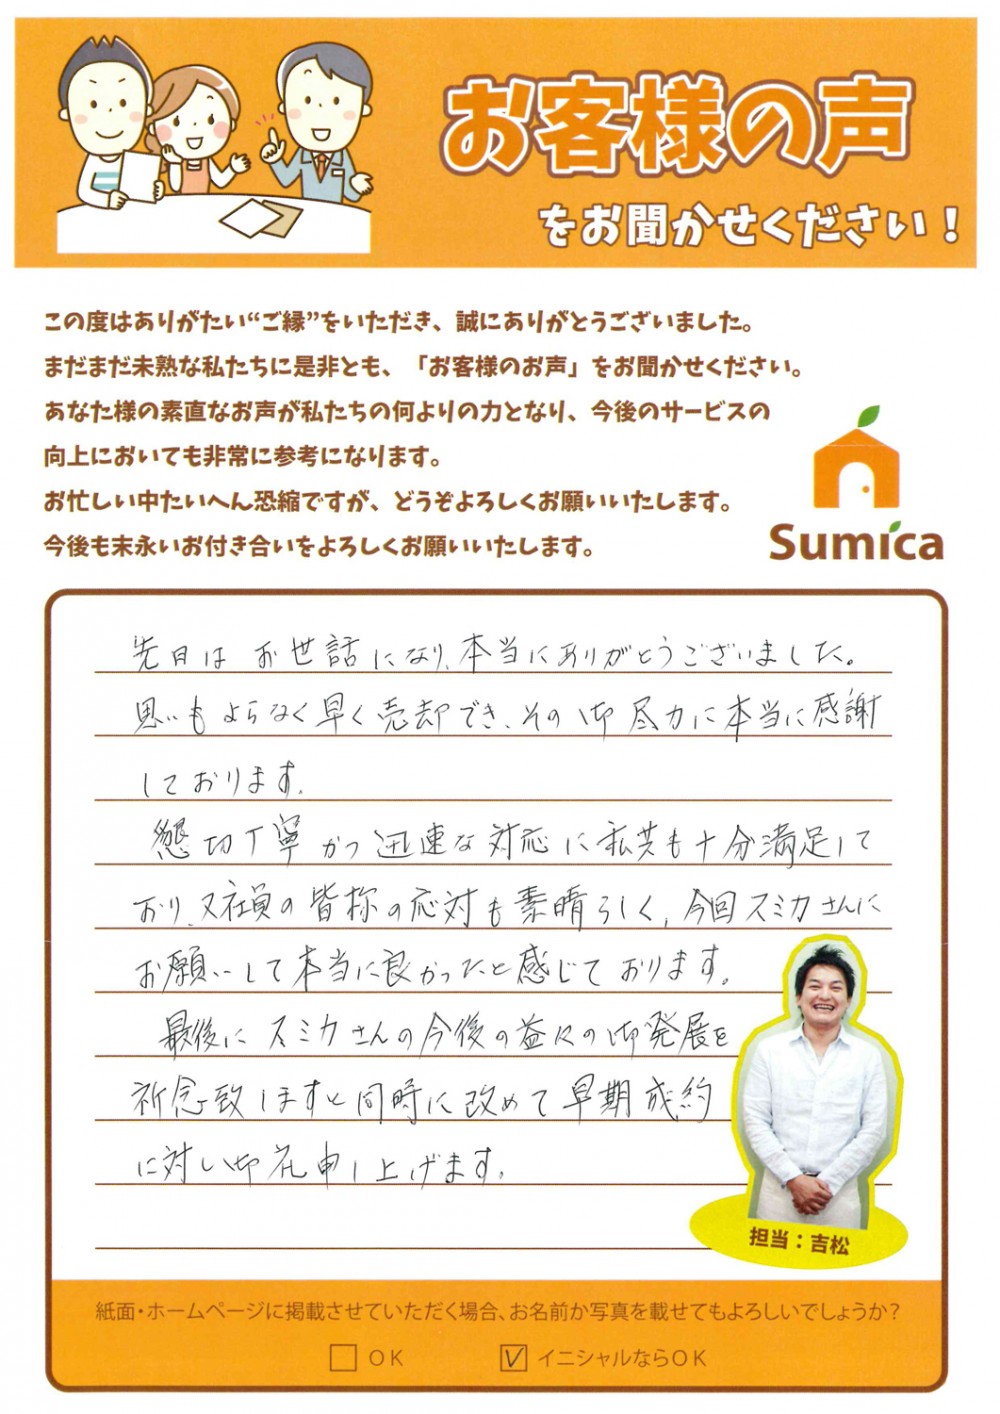 お客様の声
をお聞かせください！
この度はありがたい“ご縁”をいただき、誠にありがとうございました。
まだまだ未熟な私たちに是非とも、「お客様のお声」をお聞かせください。
あなた様の素直なお声が私たちの何よりの力となり、今後のサービスの
向上においても非常に参考になります。
お忙しい中たいへん恐縮ですが、どうぞよろしくお願いいたします。
今後も末永いお付き合いをよろしくお願いいたします。
Sumica
先日は お世話になり、本当にありがとうございました。
思いもよらなく早く売却でき、その御尽力に本当に感謝
しております。
懇切丁寧かつ迅速な対応に私共も十分満足して
おり、又社員の皆様の応対も素晴らしく、今回スミカさんに
お願いして本当に良かったと感じております。
最後に スミカさんの今後の益々の御発展を
祈念致しますと同時に改めて早期成約
に対し御礼申し上げます。
担当：吉松
紙面・ホームページに掲載させていただく場合、お名前か写真を載せてもよろしいでしょうか？
OK イニシャルならOK